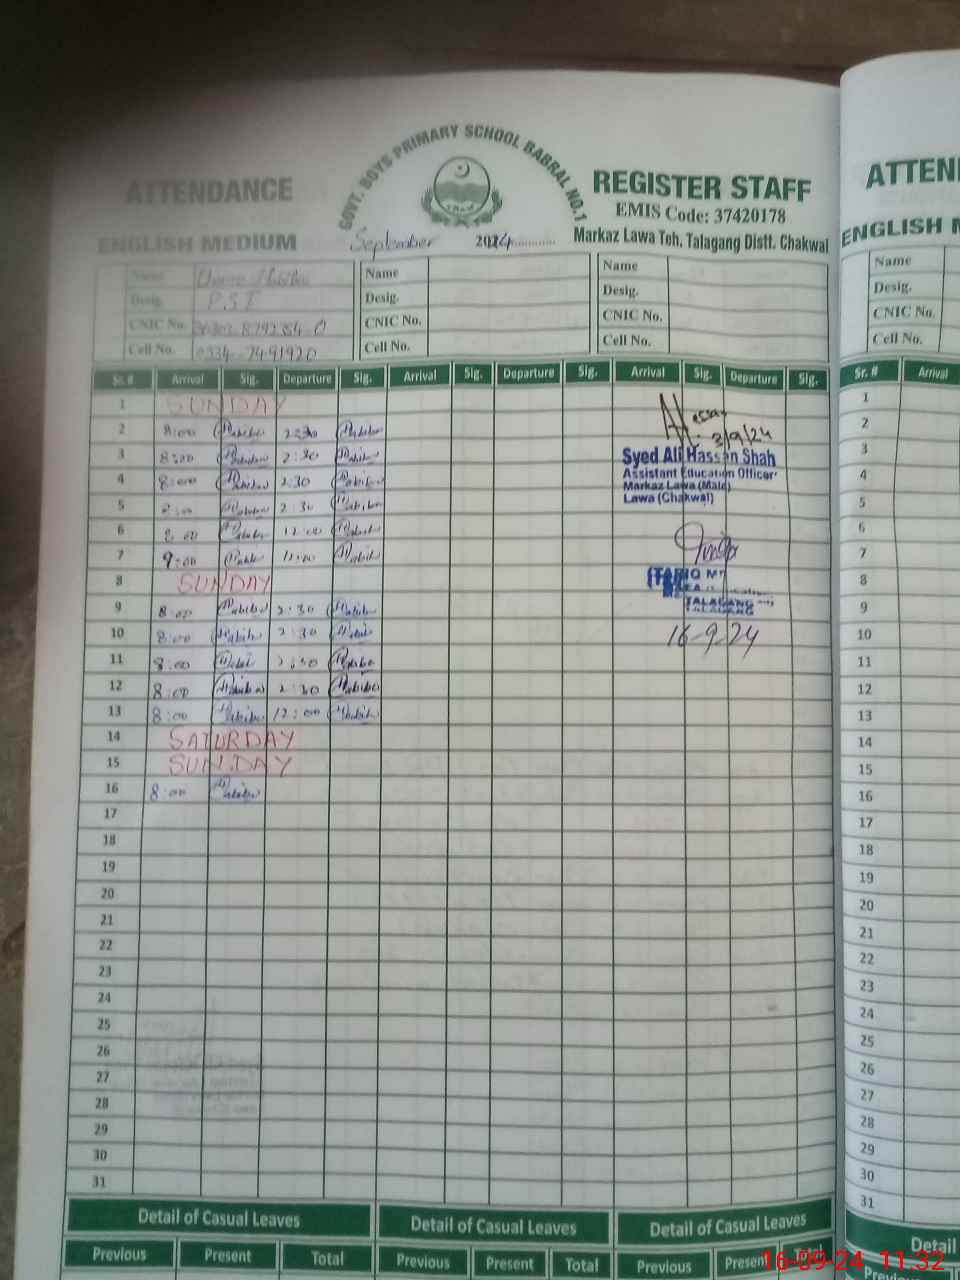 GOVT. BOYS PRIMARY SCHOOL BABRAL NO.1
ATTENDANCE REGISTER STAFF
EMIS Code: 37420178
ENGLISH MEDIUM September 2024 Markaz Lawa Teh. Talagang Distt. Chakwal
Name Name Name
Desig. P.S.T Desig. Desig.
CNIC No. CNIC No. CNIC No.
Cell No. 0334-7491920 Cell No. Cell No.
Sr. # Arrival Sig. Departure Sig. Arrival Sig. Departure Sig. Arrival Sig. Departure Sig.
1 SUNDAY
2 8:00 2:30
3 8:00 2:30
4 8:00 2:30
5 8:00 2:30
6 8:00 12:00
7 9:00 12:00
8 SUNDAY
9 8:00 2:30
10 8:00 2:30
11 8:00 2:30
12 8:00 2:30
13 8:00 12:00
14 SATURDAY
15 SUNDAY
16 8:00
17
18
19
20
21
22
23
24
25
26
27
28
29
30
31
3/9/24
Syed Ali Hassan Shah
Assistant Education Officer
Markaz Lawa (Male)
Lawa (Chakwal)
TARIQ
TALAGANG
TALAGANG
16-9-24
Detail of Casual Leaves Detail of Casual Leaves Detail of Casual Leaves
Previous Present Total Previous Present Total Previous Present Total
ATTEN
ENGLISH M
Name
Desig.
CNIC No.
Cell No.
Sr. # Arrival
1
2
3
4
5
6
7
8
9
10
11
12
13
14
15
16
17
18
19
20
21
22
23
24
25
26
27
28
29
30
31
Detail
16-09-24 11:32